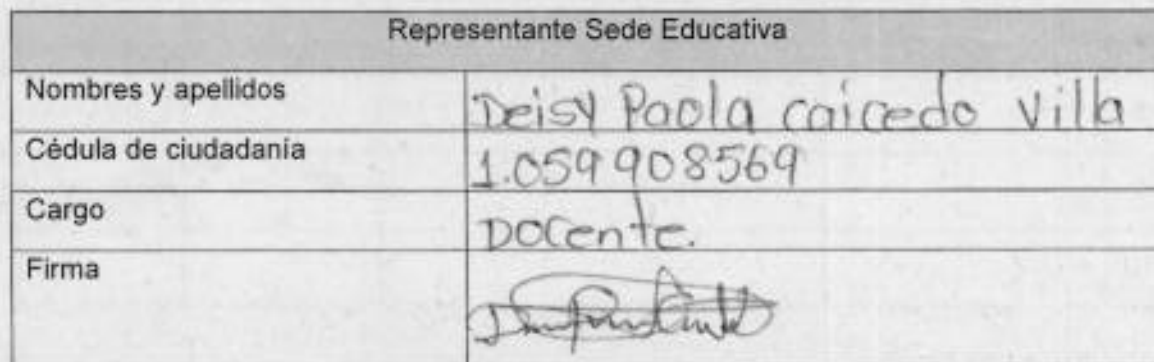 Representante Sede Educativa
Nombres y apellidos Deisy Paola caicedo Villa
Cédula de ciudadanía 1.059908569
Cargo Docente.
Firma